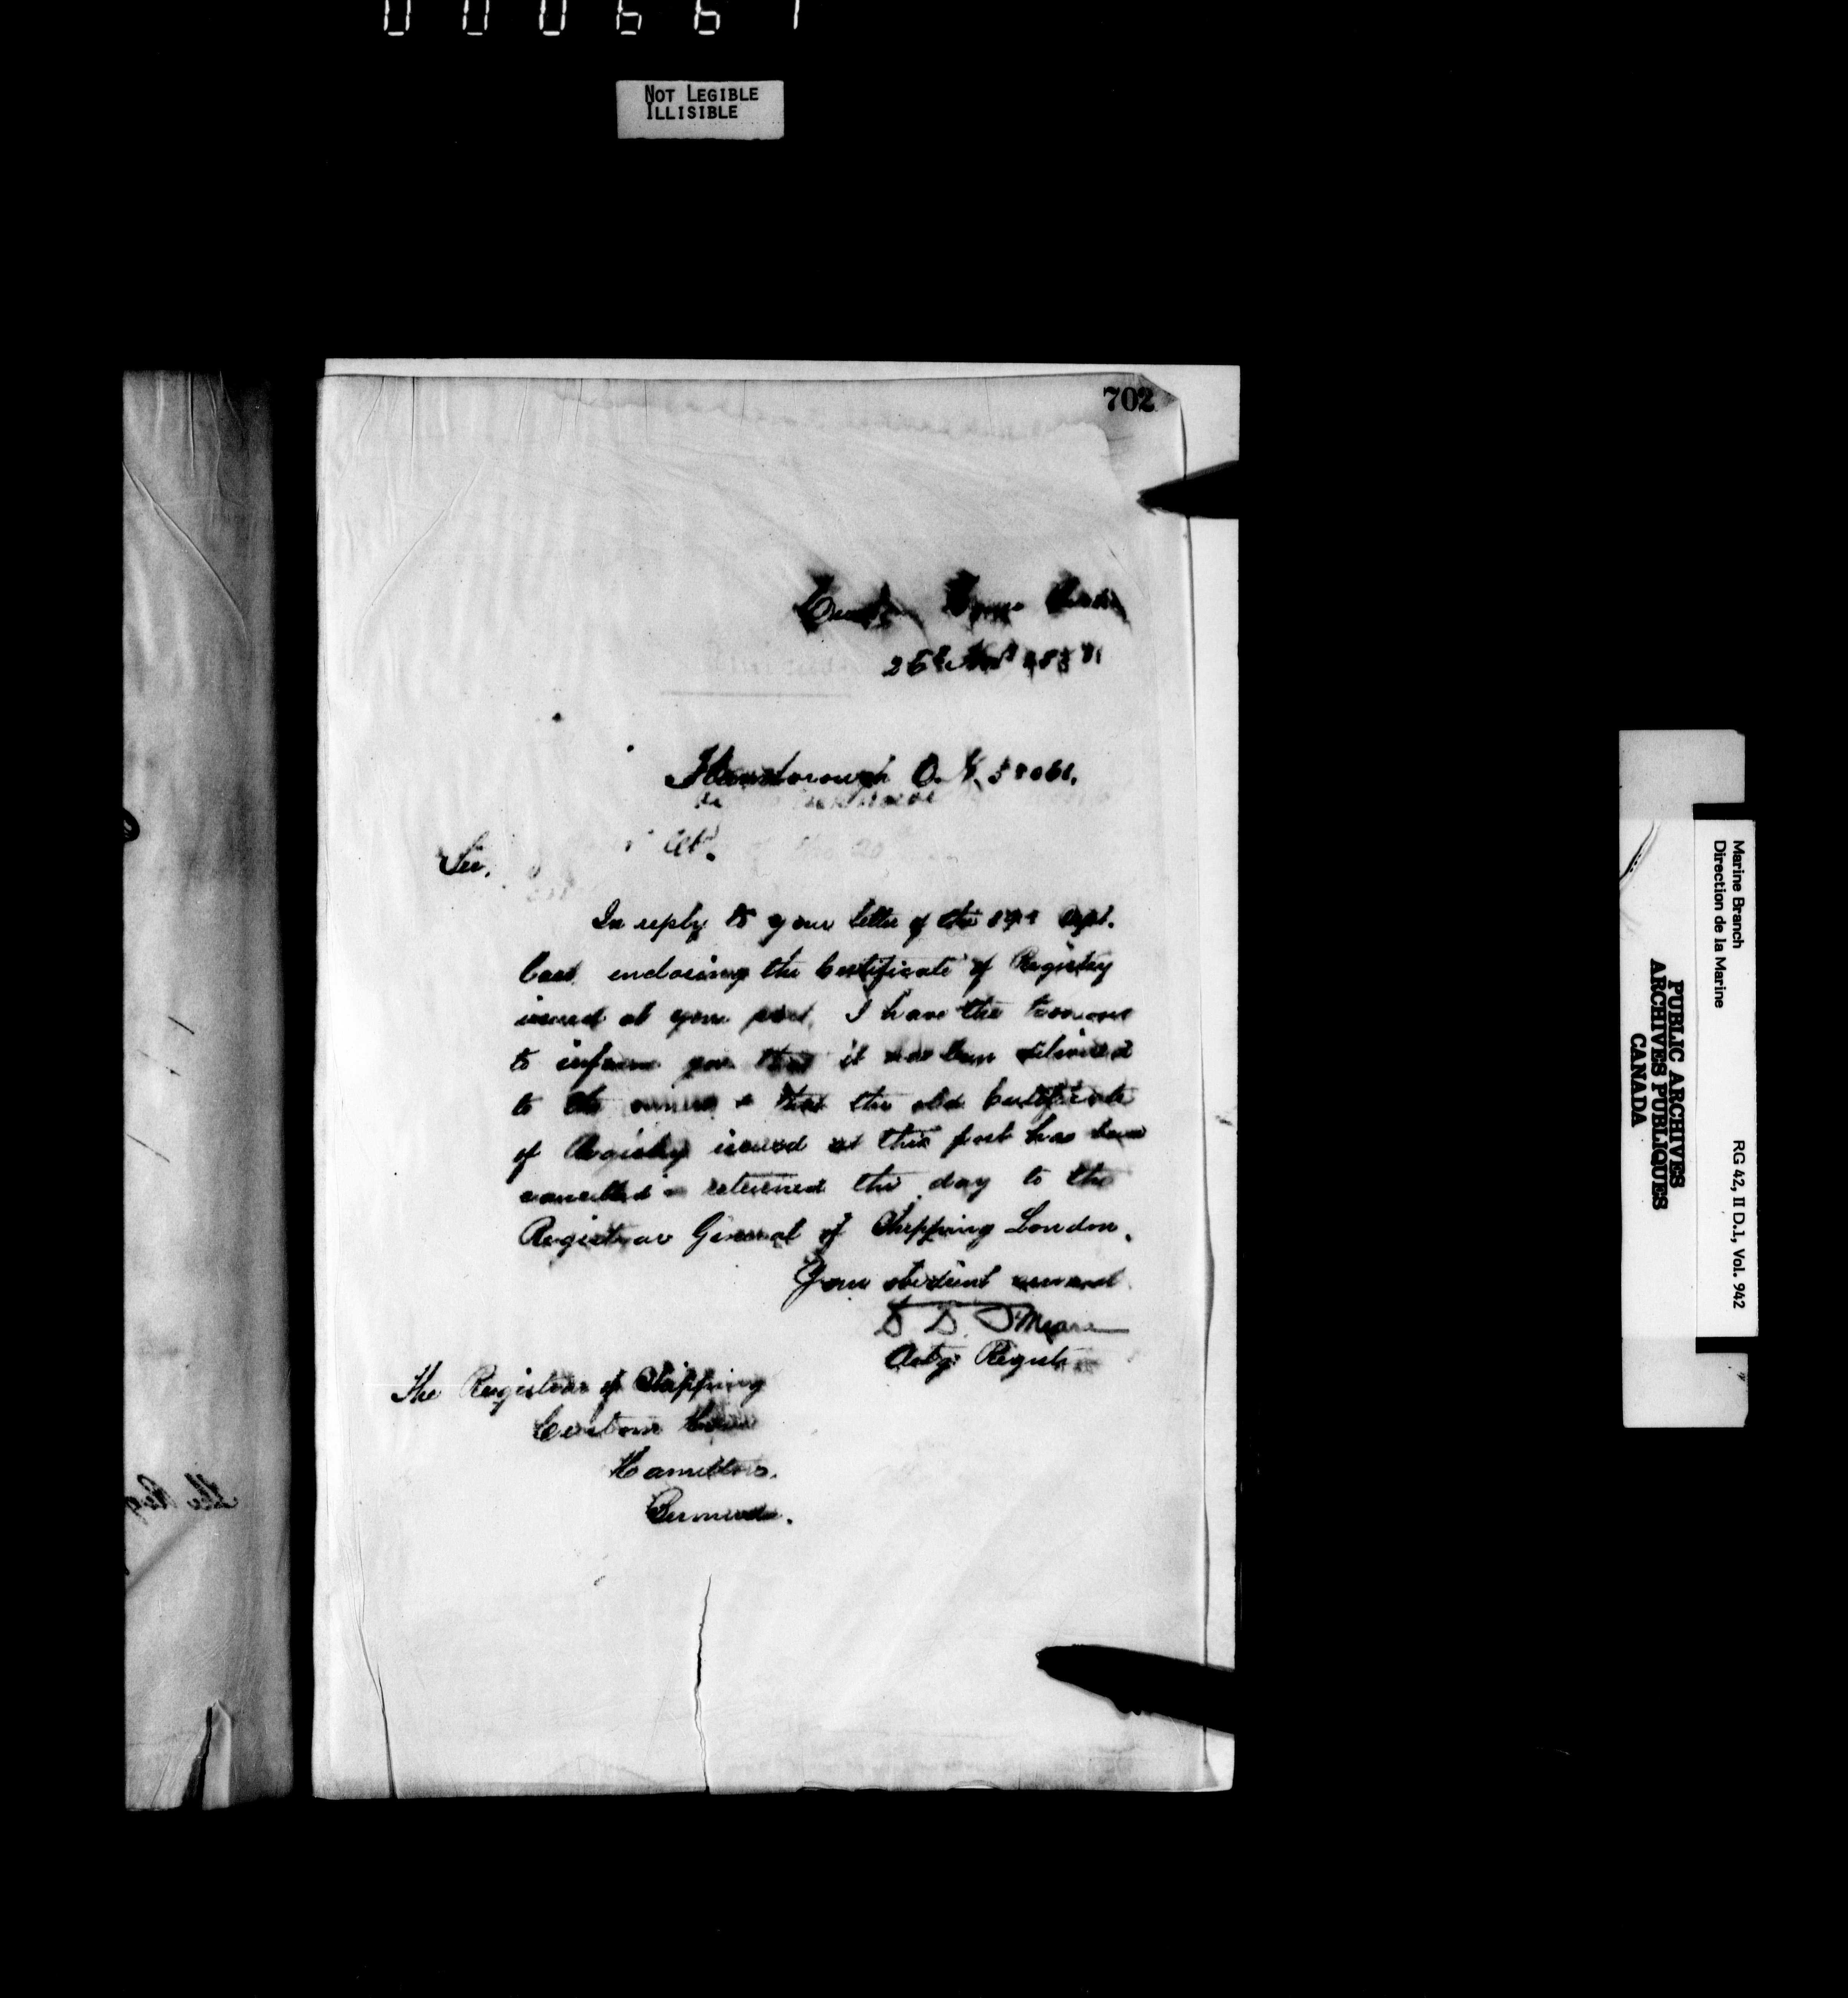 000661
NOT LEGIBLE
ILLISIBLE
702
Custom House
26th Novr
O. N.
Sir,
In reply to your letter of the Sept.
last enclosing the Certificate of Registry
issued at your port, I have the honour
to inform you that it has been delivered
to the owners & that the old Certificate
of Registry issued at this port has been
cancelled & returned this day to the
Registrar General of Shipping London.
Your obedient servant
Actg Registr
The Registrar of Shipping
Custom House
Hamilton.
Bermuda.
Marine Branch
Direction de la Marine
RG 42, II D.1, Vol. 942
PUBLIC ARCHIVES
ARCHIVES PUBLIQUES
CANADA